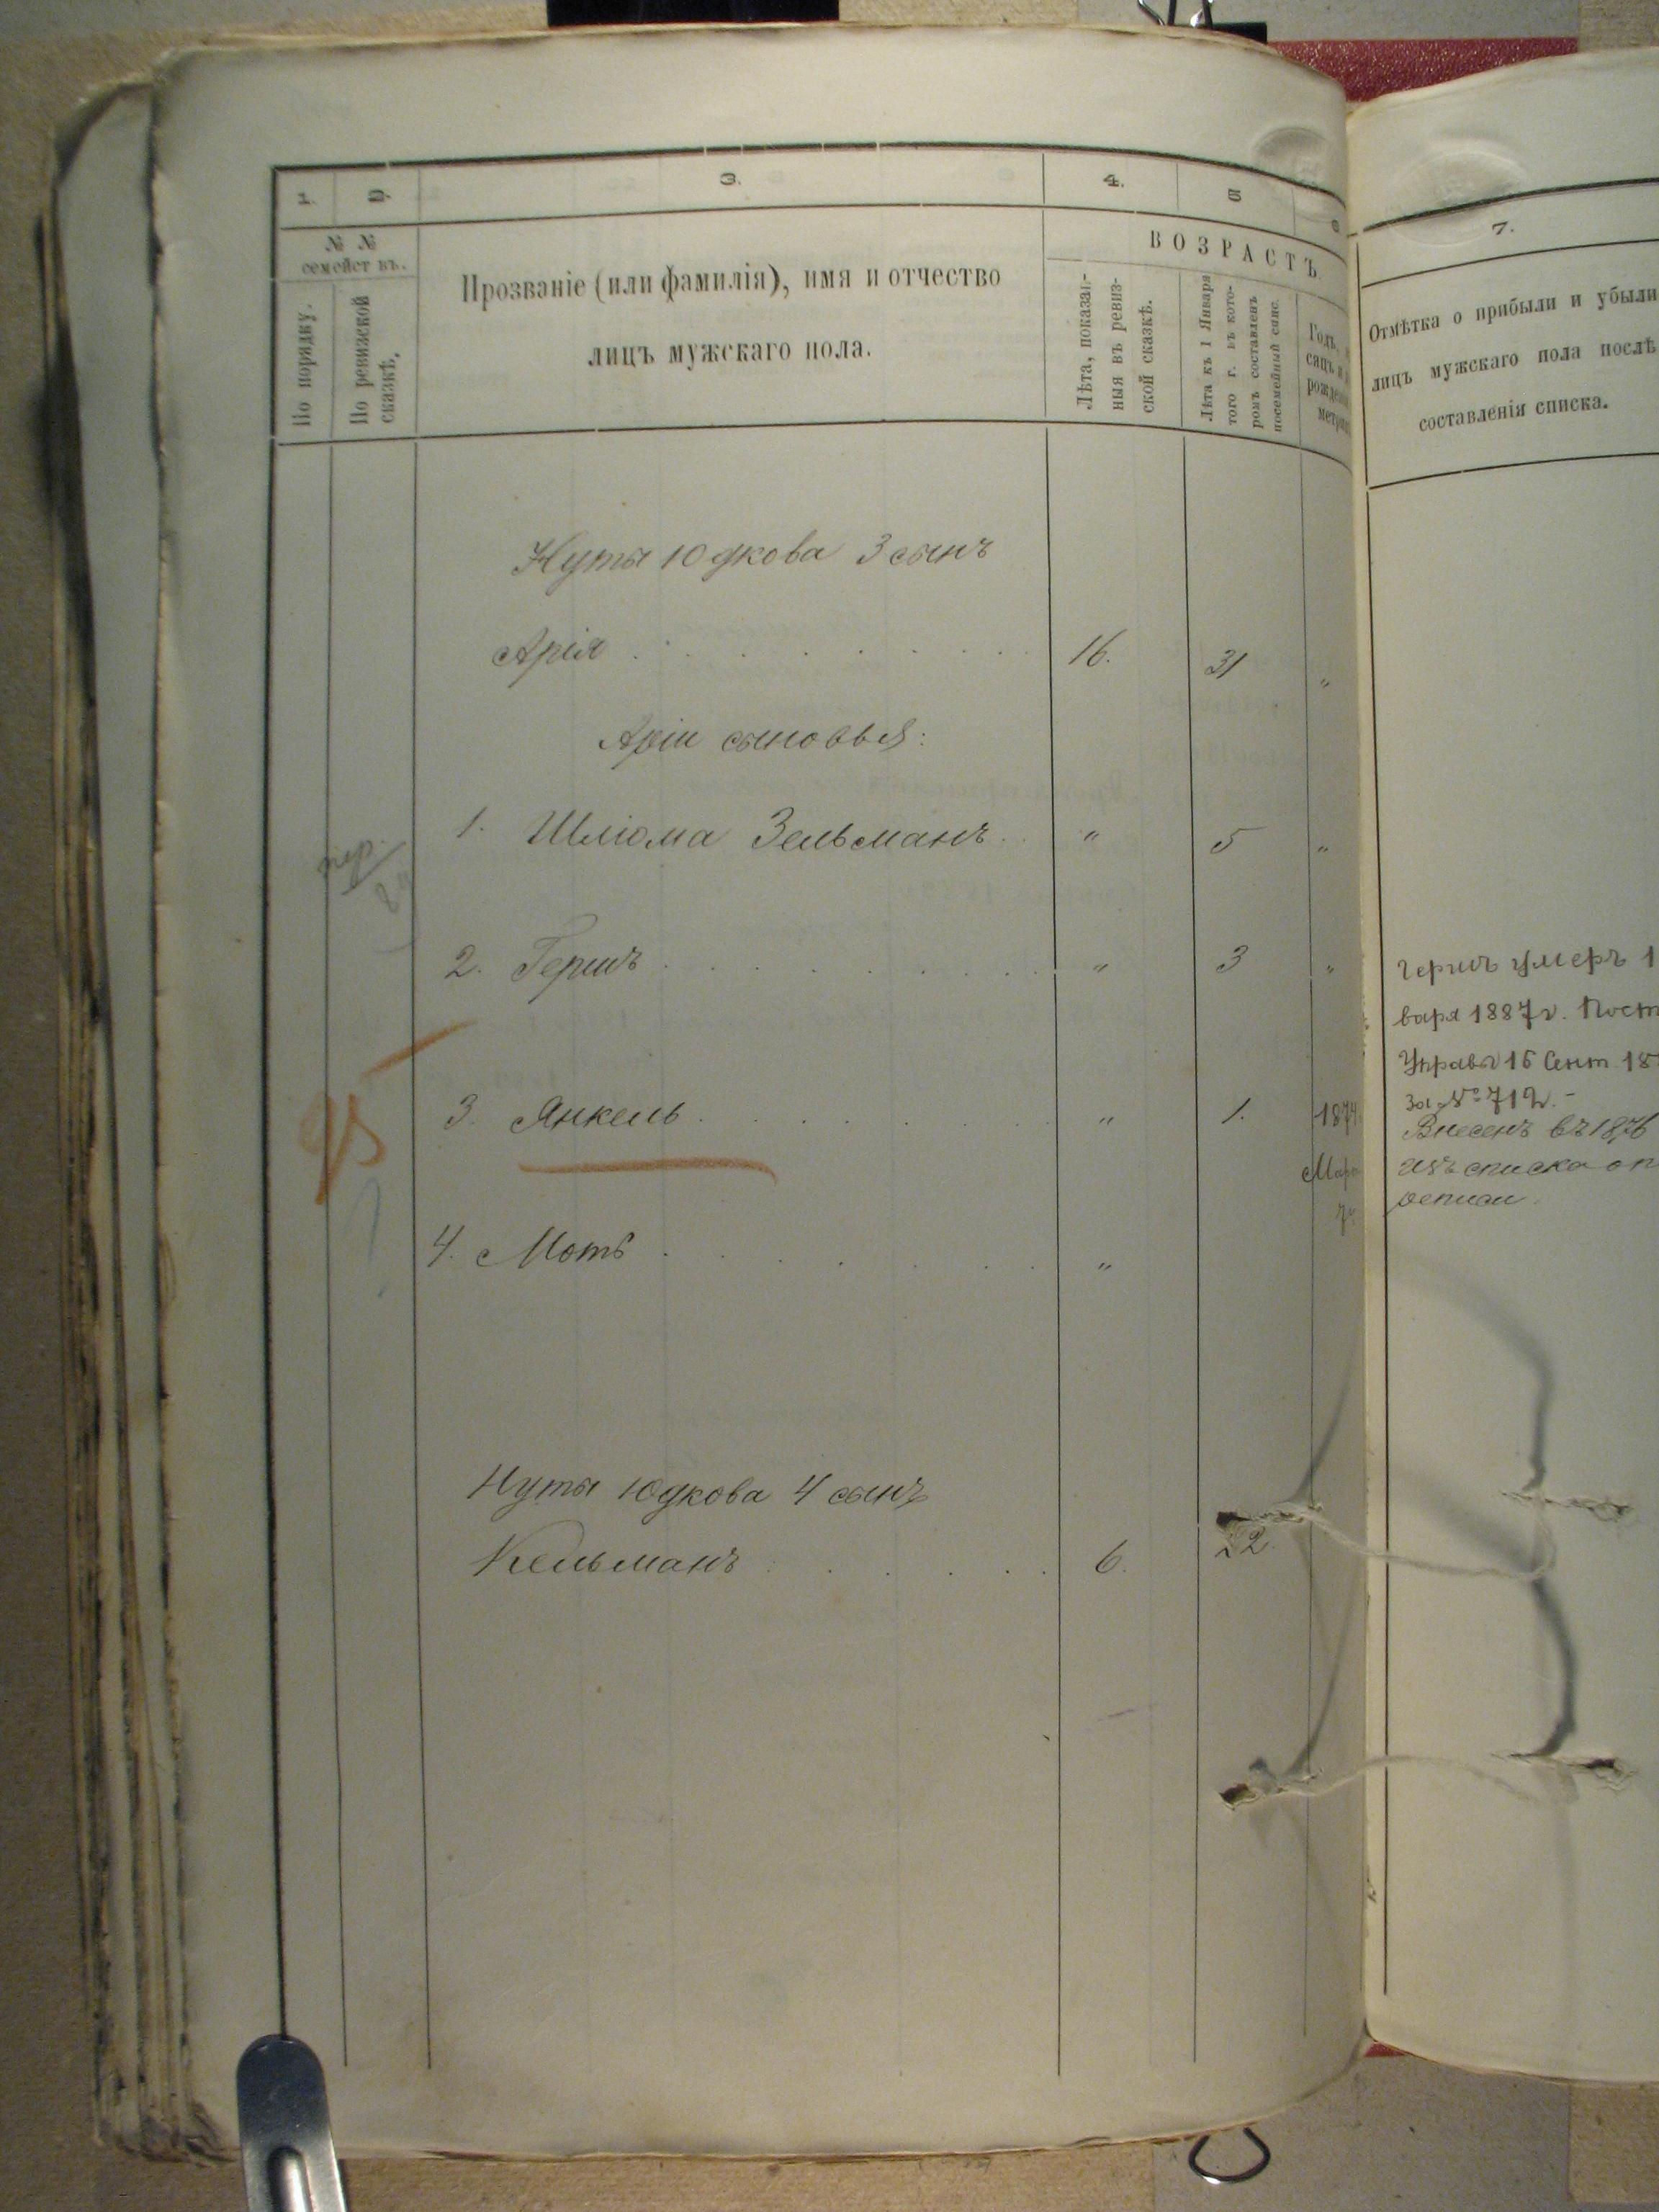 1. 2. 3. 4. 5 6
№ № семействъ.
По порядку.
По ревизской сказкѣ.
Прозваніе (или фамилія), имя и отчество
лицъ мужскаго пола.
ВОЗРАСТЪ
Лѣта, показан-
ныя въ ревиз-
ской сказкѣ.
Лѣта къ 1 Января
того г. въ кото-
ромъ составленъ
посемейный спис.
Годъ,
сяцъ и
рожден
метри
Нуты Юдкова 3 сынъ
Арія 16. 31 „
Аріи сыновья:
1. Шліома Зельманъ „ 5 „
пер.
2. Гершъ „ 3 „
95
3. Янкель „ 1. 1874
Мар
7
4. Моть „
Нуты Юдкова 4 сынъ
Кельманъ 6. 22.
7.
Отмѣтка о прибыли и убыли
лицъ мужскаго пола послѣ
составленія списка.
Гершъ умеръ 1
варя 1887 г. Пост
Управы 15 Сент 18
за № 712.-
Внесенъ въ 1876
изъ списка о п